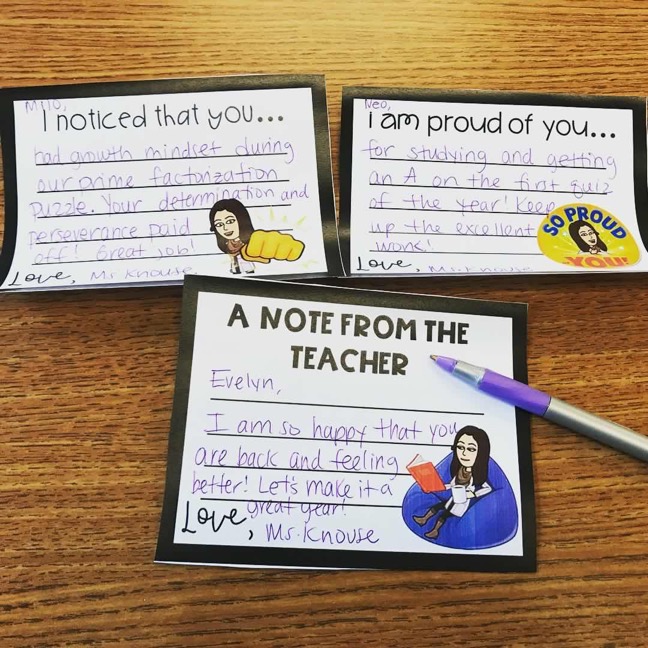 Milo,
I noticed that you...
had growth mindset during
our prime factorization
puzzle. Your determination and
perseverance paid
off! Great job!
Love, Ms. Knouse
Neo,
i am proud of you...
for studying and getting
an A on the first quiz
of the year! Keep
up the excellent
work!
SO PROUD
OF YOU!
Love, Ms. Knouse
A NOTE FROM THE
TEACHER
Evelyn,
I am so happy that you
are back and feeling
better! Let's make it a
great year!
Love, Ms. Knouse